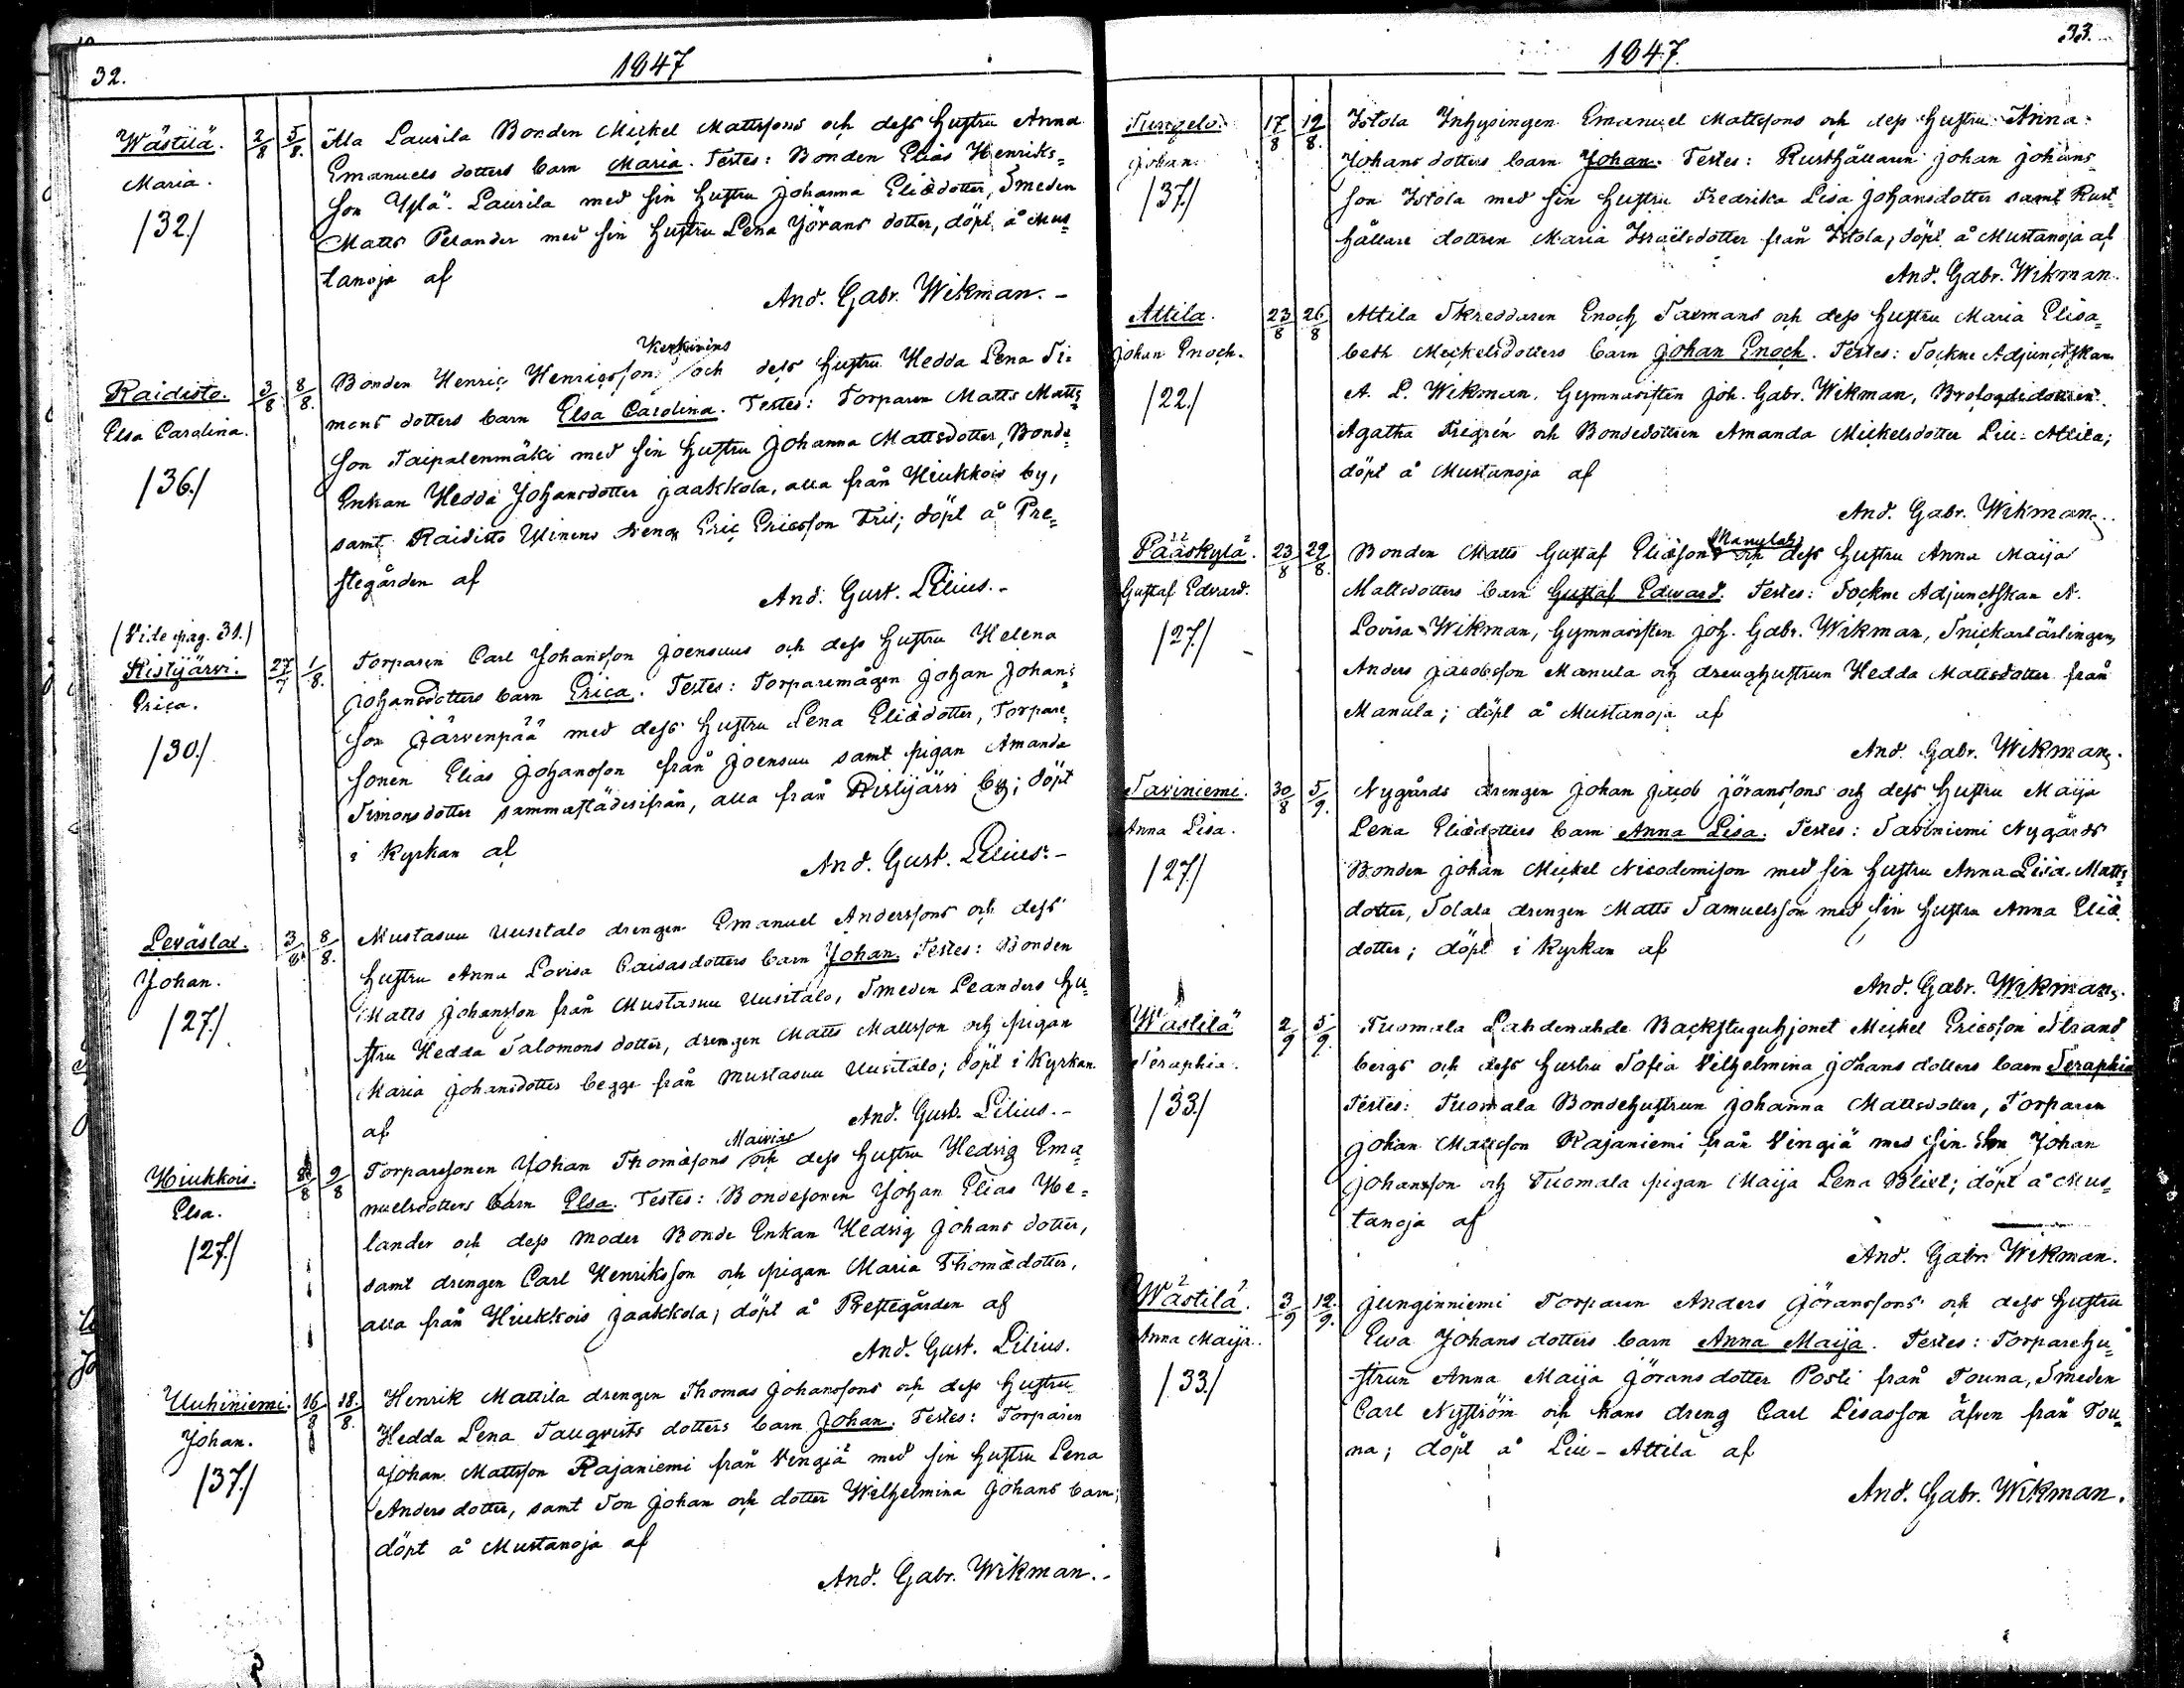 32.
1847
Wästilä.
Maria.
/32./
2/8 5/8.
Ala Laurila Bonden Mickel Mattssons och dess hustru Anna
Emanuels dotters barn Maria. Testes: Bonden Elias Henriks=
son Yplä-Laurila med sin hustru Johanna Eliædotter, Smeden
Matts Pelander med sin hustru Lena Jörans dotter, döpt å Mus=
tanoja af
And. Gabr. Wikman.-
Raidisto.
Elsa Carolina.
/36./
3/8 8/8.
Bonden Henric Henricsson och dess hustru Hedda Lena Si=
mons dotters barn Elsa Carolina. Testes: Torparen Matts Matts
son Taipalenmäki med sin hustru Johanna Mattsdotter, Bonde
Enkan Hedda Johansdotter Jaakkola, alla från Hiukkois by,
samt Raidisto dreng Eric Ericsson Fris; döpt å Pre=
stegården af
And. Gust. Lilius.-
(Vide pag. 31.)
Ristijärvi.
Erica.
/30./
27/7 1/8.
Torparen Carl Johansson Joensuus och dess hustru Helena
Johansdotters barn Erica. Testes: Torparemågen Johan Johans=
son Järvenpää med dess hustru Lena Eliædotter, Torpare
sonen Elias Johansson från Joensuu samt pigan Amanda
Simonsdotter sammastädesifrån, alla från Ristijärvi by; döpt
i Kyrkan af
And. Gust. Lilius.-
Leväslax.
Johan.
/27./
3/8. 8/8.
Mustasuu Uusitalo drengen Emanuel Anderssons och dess
hustru Anna Lovisa Caisasdotters barn Johan. Testes: Bonden
Matts Johansson från Mustasuu Uusitalo, Smeden Leanders hu=
stru Hedda Salomons dotter, drengen Matts Mattsson och pigan
Maria Johansdotter begge från Mustasuu Uusitalo; döpt i Kyrkan
af
And. Gust. Lilius.-
Hiukkois.
Elsa.
/27./
9/8
Torparesonen Johan Thomæsons och dess hustru Hedvig Ema=
nuelsdotters barn Elsa. Testes: Bondesonen Johan Elias He=
lander och dess moder Bonde Enkan Hedvig Johans dotter,
samt drengen Carl Henriksson och pigan Maria Thomædotter,
alla från Hiukkois Jaakkola; döpt å Prestegården af
And. Gust. Lilius.
Uuhiniemi.
Johan.
/37./
16/8 18./8.
Henrik Mattila drengen Thomas Johanssons och dess hustru
Hedda Lena Tauqvists dotters barn Johan. Testes: Torparen
Johan Mattsson Rajaniemi från Vengiä med sin hustru Lena
Anders dotter, samt Son Johan och dotter Wilhelmina Johans barn;
döpt å Mustanoja af
And. Gabr. Wikman.-
33.
1847.
Johan.
/37./
17/8 19/8.
Istola Inhysingen Emanuel Mattssons och dess hustru Anna
Johans dotters barn Johan. Testes: Rusthållaren Johan Johans
son Istola med sin hustru Fredrika Lisa Johansdotter samt Rust
hållare dottren Maria Israëlsdotter från Istola; döpt å Mustanoja af
And. Gabr. Wikman.
Attila.
Johan Enoch.
/22./
23/8 26/8
Attila Skreddaren Enoch Saxmans och dess hustru Maria Elisa=
beth Mickelsdotters barn Johan Enoch. Testes: Sockne Adjunctskan
A. L. Wikman, Gymnasisten Joh. Gabr. Wikman,
Agatha och Bondedottren Amanda Mickelsdotter Liu-Attila;
döpt å Mustanoja af
And. Gabr. Wikman.
Pääskylä.
Gustaf Edvard.
/27./
23/8 29/8.
Bonden Matts Gustaf Eliæsons Manulas och dess hustru Anna Maija
Mattsdotters barn Gustaf Edward. Testes: Sockne Adjunctskan A.
Lovisa Wikman, Gymnasisten Joh. Gabr. Wikman, Snickarlärlingen
Anders Jacobsson Manula och drenghustrun Hedda Mattsdotter från
Manula; döpt å Mustanoja af
And. Gabr. Wikman.
Saviniemi.
Anna Lisa.
/27./
30/8 5/9.
Nygårds drengen Johan Jacob Jöranssons och dess hustru Maija
Lena Eliædotters barn Anna Lisa. Testes: Saviniemi Nygårds
Bonden Johan Mickel Nicodemison med sin hustru Anna Lisa Matts
dotter, Tolala drengen Matts Samuelsson med sin hustru Anna Eliæ
dotter; döpt i Kyrkan af
And. Gabr. Wikman.
Wästilä
Seraphia.
/33./
2/9 5/9.
Tuomala Lahdenahde Backstuguhjonet Mickel Ericsson Strand
bergs och dess hustru Sofia Vilhelmina Johans dotters barn Seraphia
Testes: Tuomala Bondehustrun Johanna Mattsdotter, Torparen
Johan Mattsson Rajaniemi från Vengiä med sin Son Johan
Johansson och Tuomala pigan Maija Lena Blixt; döpt å Mus=
tanoja af
And. Gabr. Wikman.
Wästilä.
Anna Maija.
/33./
3/9 12./9.
Junginniemi Torparen Anders Jöranssons och dess hustru
Ewa Johans dotters barn Anna Maija. Testes: Torparehu=
strun Anna Maija Jörans dotter Posti från Touna, Smeden
Carl Nyström och hans dreng Carl Lisasson äfven från Tou=
na; döpt å Liu-Attila af
And. Gabr. Wikman.